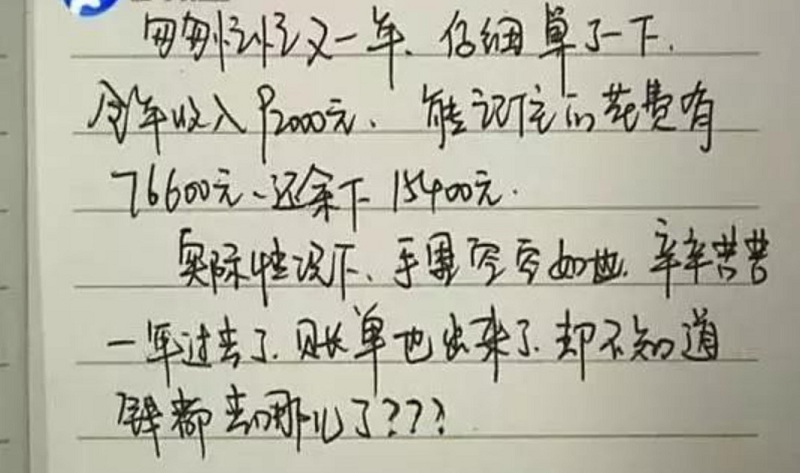 匆匆忙忙又一年、仔细算了一下.
全年收入92000元、能记住的花费有
76600元、还余下15400元.
实际情况下、手里空空如也.辛辛苦苦
一年过去了.账单也出来了.却不知道
钱都去哪儿了???